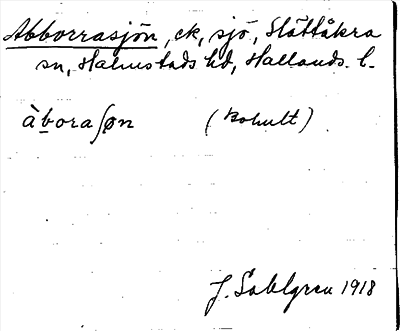 Abborrasjön, ek, sjö, Slättåkra
sn, Halmstads hd, Hallands l.
àboraʃøn (Bohult)
J. Sahlgren 1918